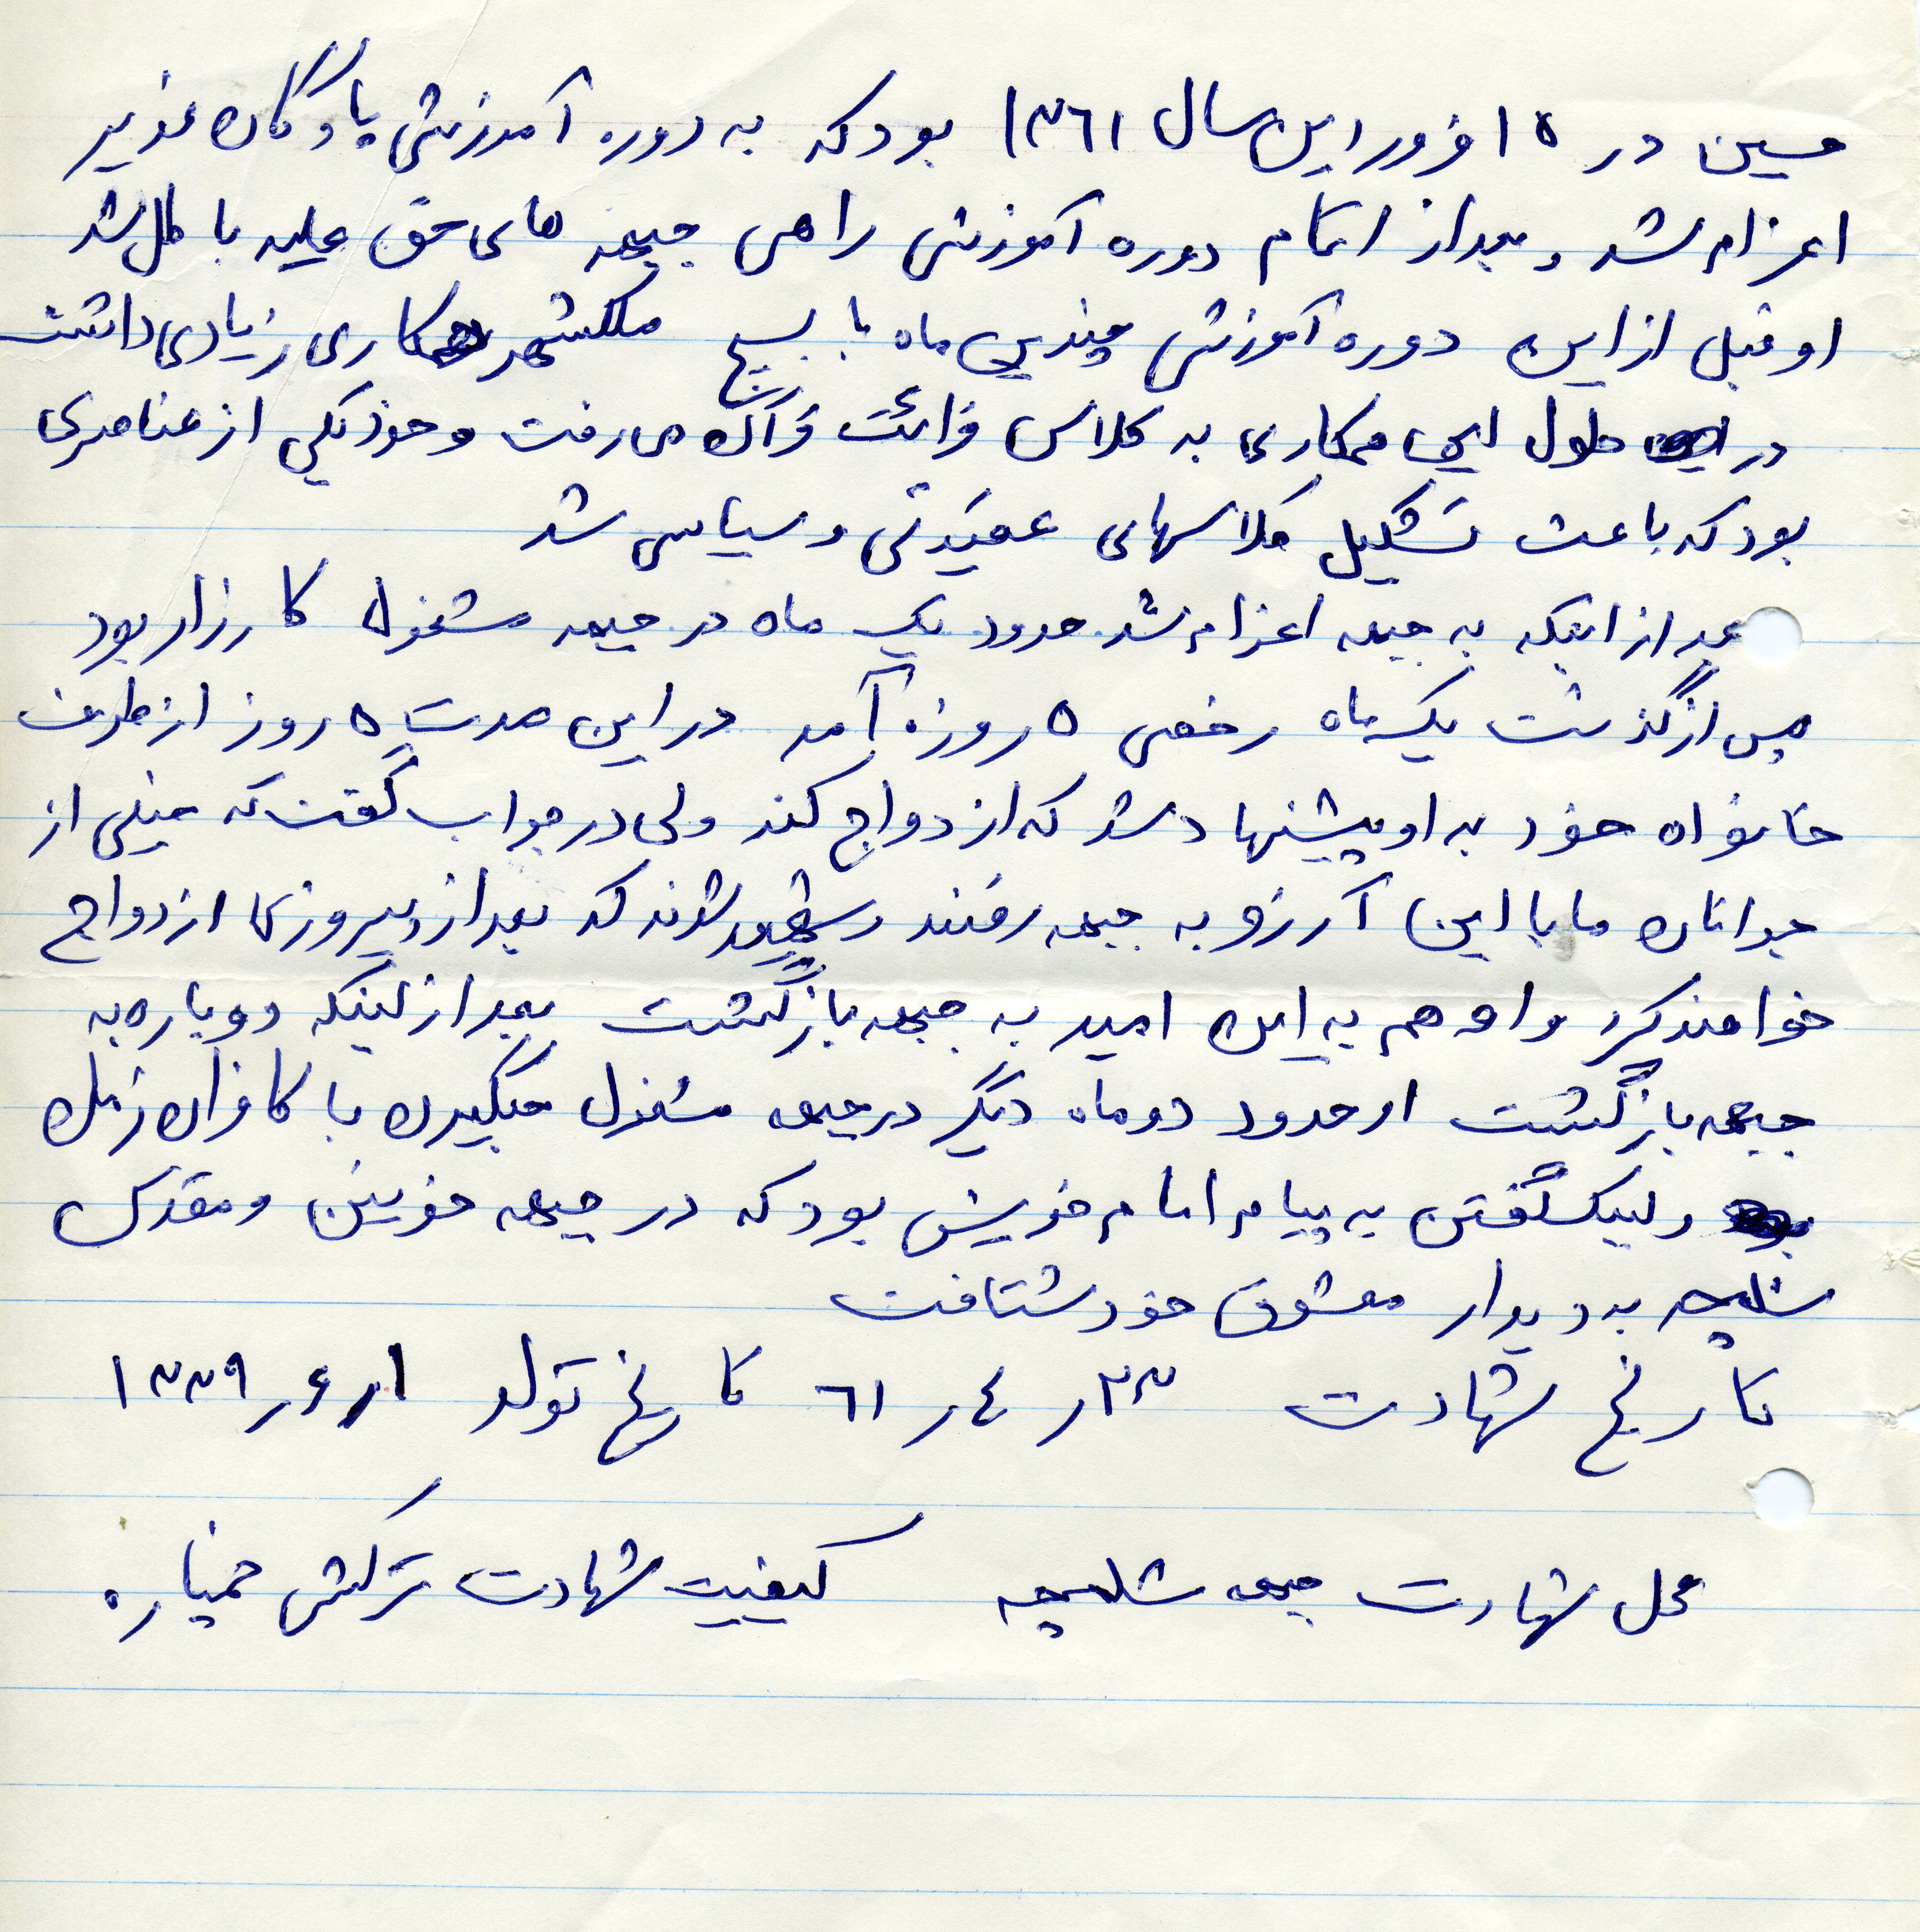 حسین در ۱۵ فروردین سال ۱۳۶۱ بود که به دوره آموزشی پادگان غدیر
اعزام شد و بعد از اتمام دوره آموزشی راهی جبهه های حق علیه باطل شد
او قبل از این دوره آموزشی چندین ماه با بسیج ملکشهر همکاری زیادی داشت
در طول این همکاری به کلاس قرائت قرآن می رفت و خود یکی از عناصری
بود که باعث تشکیل کلاسهای عقیدتی و سیاسی شد
بعد از اینکه به جبهه اعزام شد حدود یک ماه در جبهه مشغول کارزار بود
پس از گذشت یک ماه رخصی ۵ روزه آمد در این مدت ۵ روز از طرف
خانواه خود به او پیشنهاد شد که ازدواج کند ولی در جواب گفت که خیلی از
جوانان ما با این آرزو به جبهه رفتند و شهید شدند که بعد از پیروزی ازدواج
خواهند کرد و او هم به این امید به جبهه بازگشت بعد از اینکه دوباره به
جبهه بازگشت او حدود دو ماه دیگر در جبهه مشغول جنگیدن با کافران زمان
و لبیک گفتن به پیام امام خویش بود که در جبهه خونین و مقدس
شلمچه به دیدار معشوق خود شتافت
تاریخ شهادت ۲۳ر ۴ر ۶۱ تاریخ تولد ۱ر۶ر۱۳۳۹
محل شهادت جبهه شلمچه کیفیت شهادت ترکش خمپاره